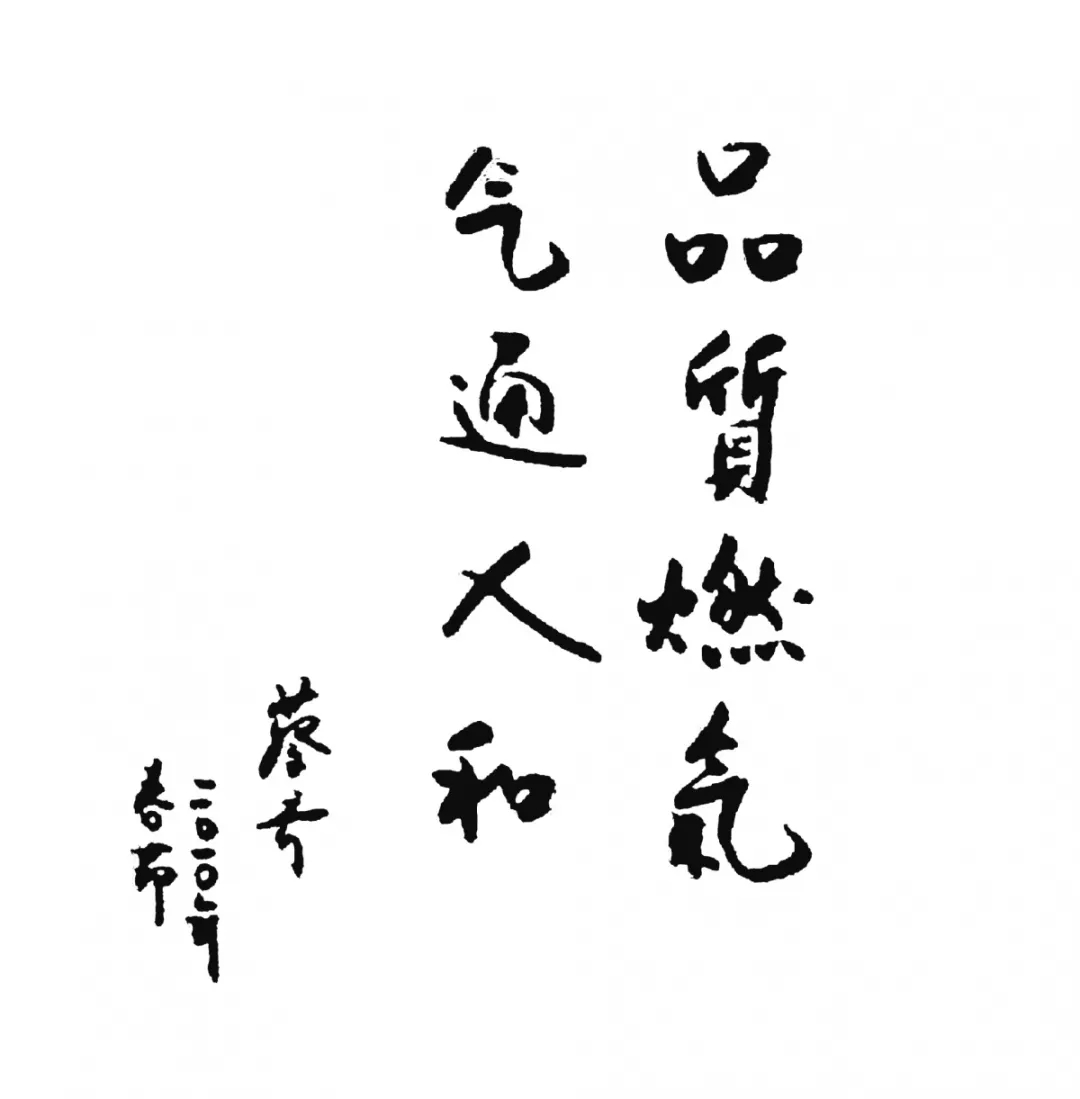 品質燃氣
气通人和
蔡
二〇一〇年
春節